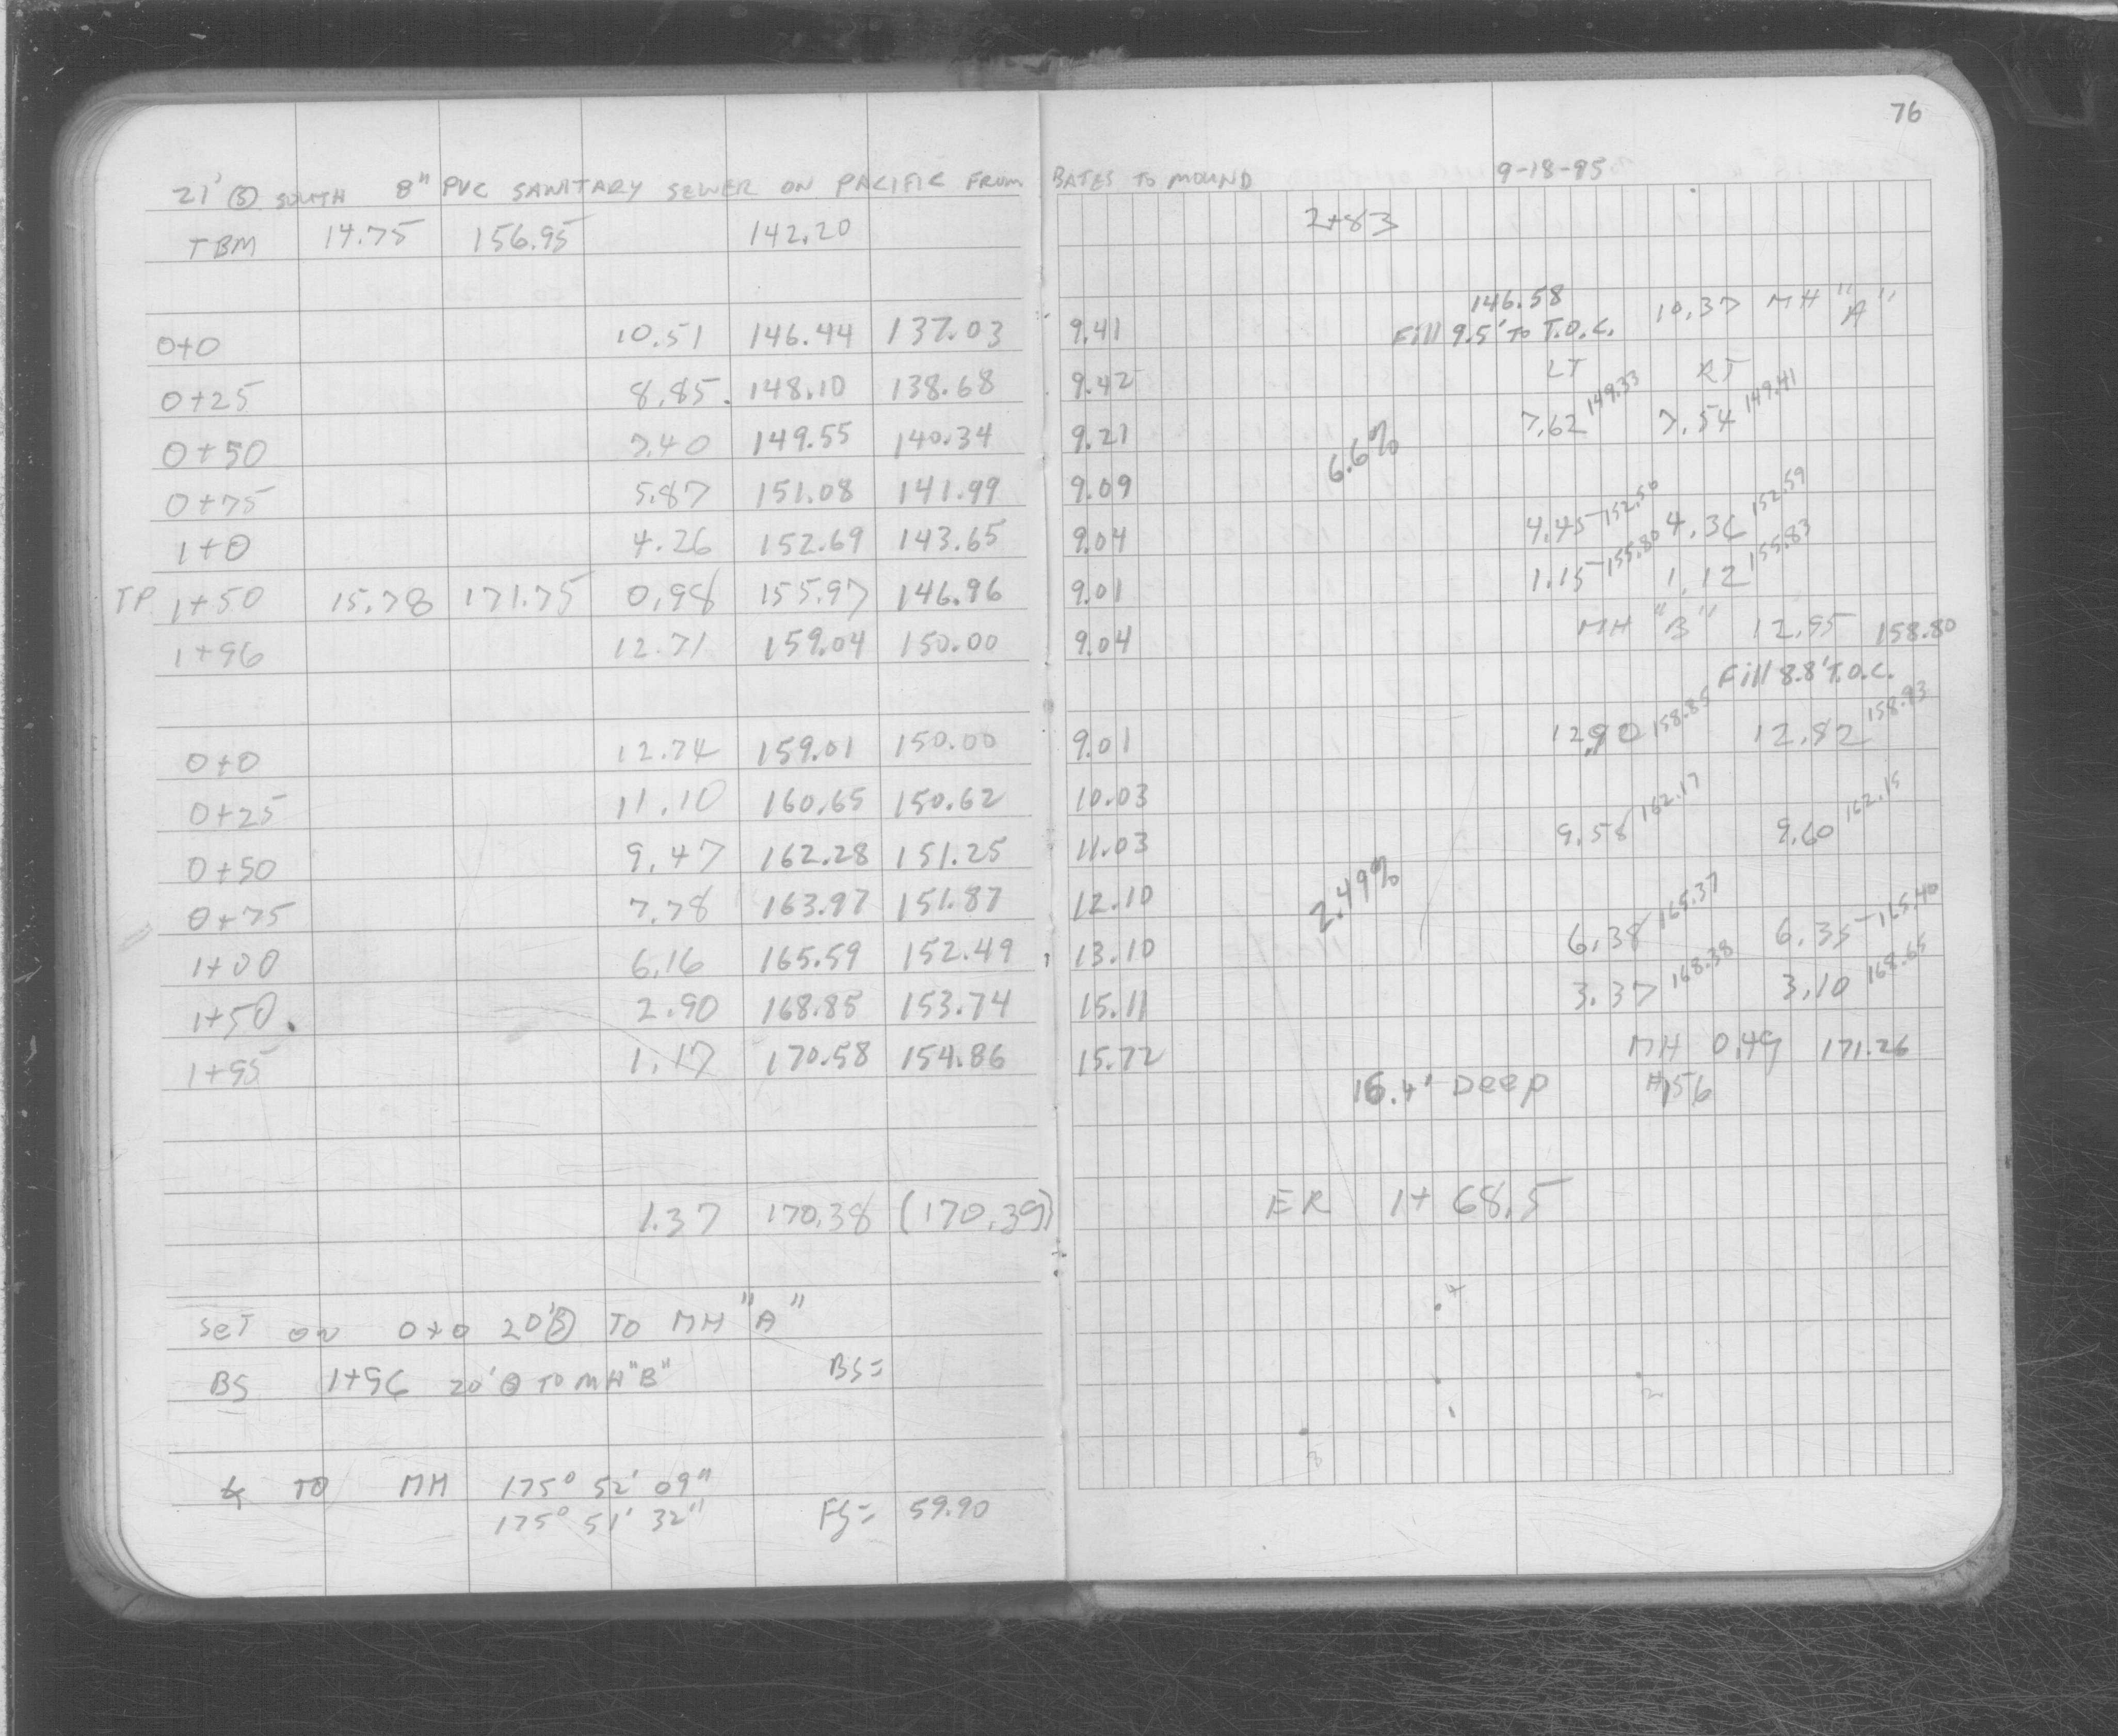 76
21' Ⓢ SOUTH 8" PVC SANITARY SEWER ON PACIFIC FROM BATES TO MOUND 9-18-95
TBM 14.75 156.95 142.20 2+83
146.58 10.37 MH "A"
0+0 10.51 146.44 137.03 9.41 Fill 9.5' TO T.O.C.
LT RT
0+25 8.85 148.10 138.68 9.42
0+50 7.40 149.55 140.34 9.21 6.6% 7.62 149.33 7.54 149.41
0+75 5.87 151.08 141.99 9.09
1+0 4.26 152.69 143.65 9.04 4.45 152.50 4.36 152.59
TP 1+50 15.78 171.75 0.98 155.97 146.96 9.01 1.15 155.80 1.12 155.83
1+96 12.71 159.04 150.00 9.04 MH "B" 12.95 158.80
Fill 8.8' T.O.C.
0+0 12.74 159.01 150.00 9.01 12.90 158.85 12.82 158.93
0+25 11.10 160.65 150.62 10.03
0+50 9.47 162.28 151.25 11.03 9.58 162.17 9.60 162.15
0+75 7.78 163.97 151.87 12.10 2.49%
1+00 6.16 165.59 152.49 13.10 6.38 165.37 6.35 165.40
1+50 2.90 168.85 153.74 15.11 3.37 168.38 3.10 168.65
1+95 1.17 170.58 154.86 15.72 MH 0.49 171.26
16.4' Deep #156
1.37 170.38 (170.39) ER 1+68.5
SET ON 0+0 20' Ⓢ TO MH "A"
BS 1+96 20' TO MH "B" BS=
∡ TO MH 175° 52' 09"
175° 51' 32" FS= 59.90
1
2
3